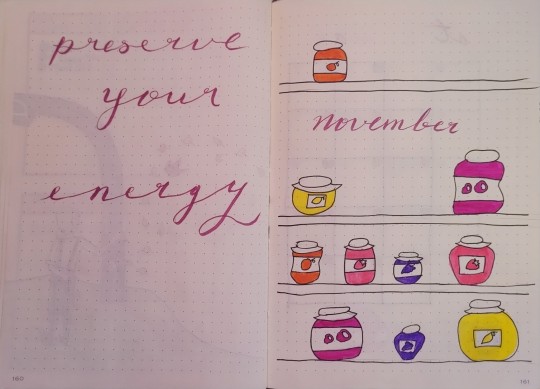 preserve
your
energy
november
160
161